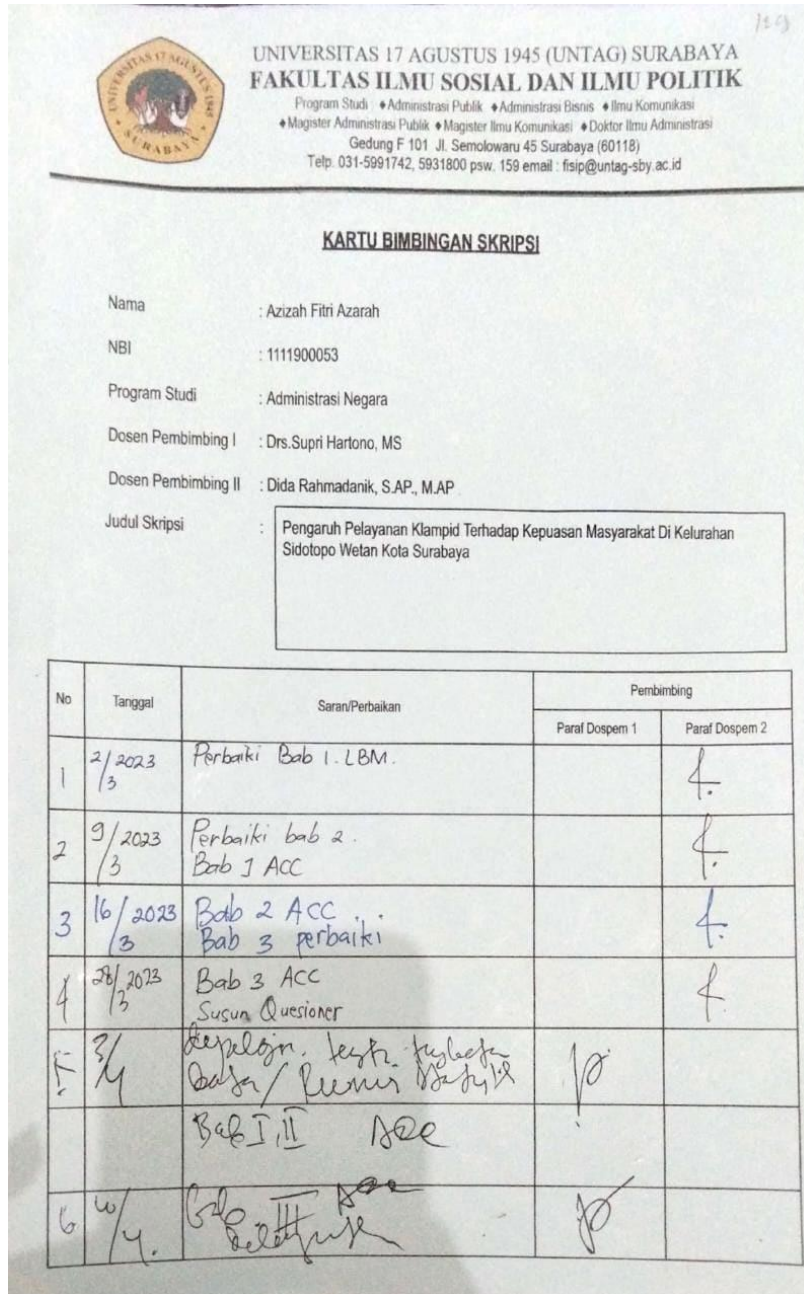 UNIVERSITAS 17 AGUSTUS 1945
SURABAYA
UNIVERSITAS 17 AGUSTUS 1945 (UNTAG) SURABAYA
FAKULTAS ILMU SOSIAL DAN ILMU POLITIK
Program Studi : ♦Administrasi Publik ♦Administrasi Bisnis ♦Ilmu Komunikasi
♦Magister Administrasi Publik ♦Magister Ilmu Komunikasi ♦Doktor Ilmu Administrasi
Gedung F 101 Jl. Semolowaru 45 Surabaya (60118)
Telp. 031-5991742, 5931800 psw. 159 email : fisip@untag-sby.ac.id
KARTU BIMBINGAN SKRIPSI
Nama : Azizah Fitri Azarah
NBI : 1111900053
Program Studi : Administrasi Negara
Dosen Pembimbing I : Drs.Supri Hartono, MS
Dosen Pembimbing II : Dida Rahmadanik, S.AP., M.AP
Judul Skripsi : Pengaruh Pelayanan Klampid Terhadap Kepuasan Masyarakat Di Kelurahan
Sidotopo Wetan Kota Surabaya
No Tanggal Saran/Perbaikan Pembimbing
Paraf Dospem 1 Paraf Dospem 2
1 2/3 2023 Perbaiki Bab 1. LBM.
2 9/3 2023 Perbaiki bab 2.
Bab 1 ACC
3 16/3 2023 Bab 2 ACC
Bab 3 perbaiki
4 28/3 2023 Bab 3 ACC
Susun Quesioner
5 3/4
Bab I, II Acc
6 10/4. Bab III Acc